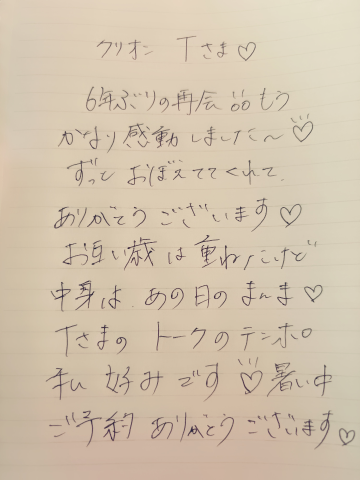 クリオン Tさま♡
6年ぶりの再会 もう
かなり感動しました〜♡
ずっと おぼえててくれて
ありがとうございます♡
お互い歳は重ねたけど
中身は あの日のまんま♡
Tさまの トークのテンポ
私 好みです♡ 暑い中
ご予約 ありがとうございます♡